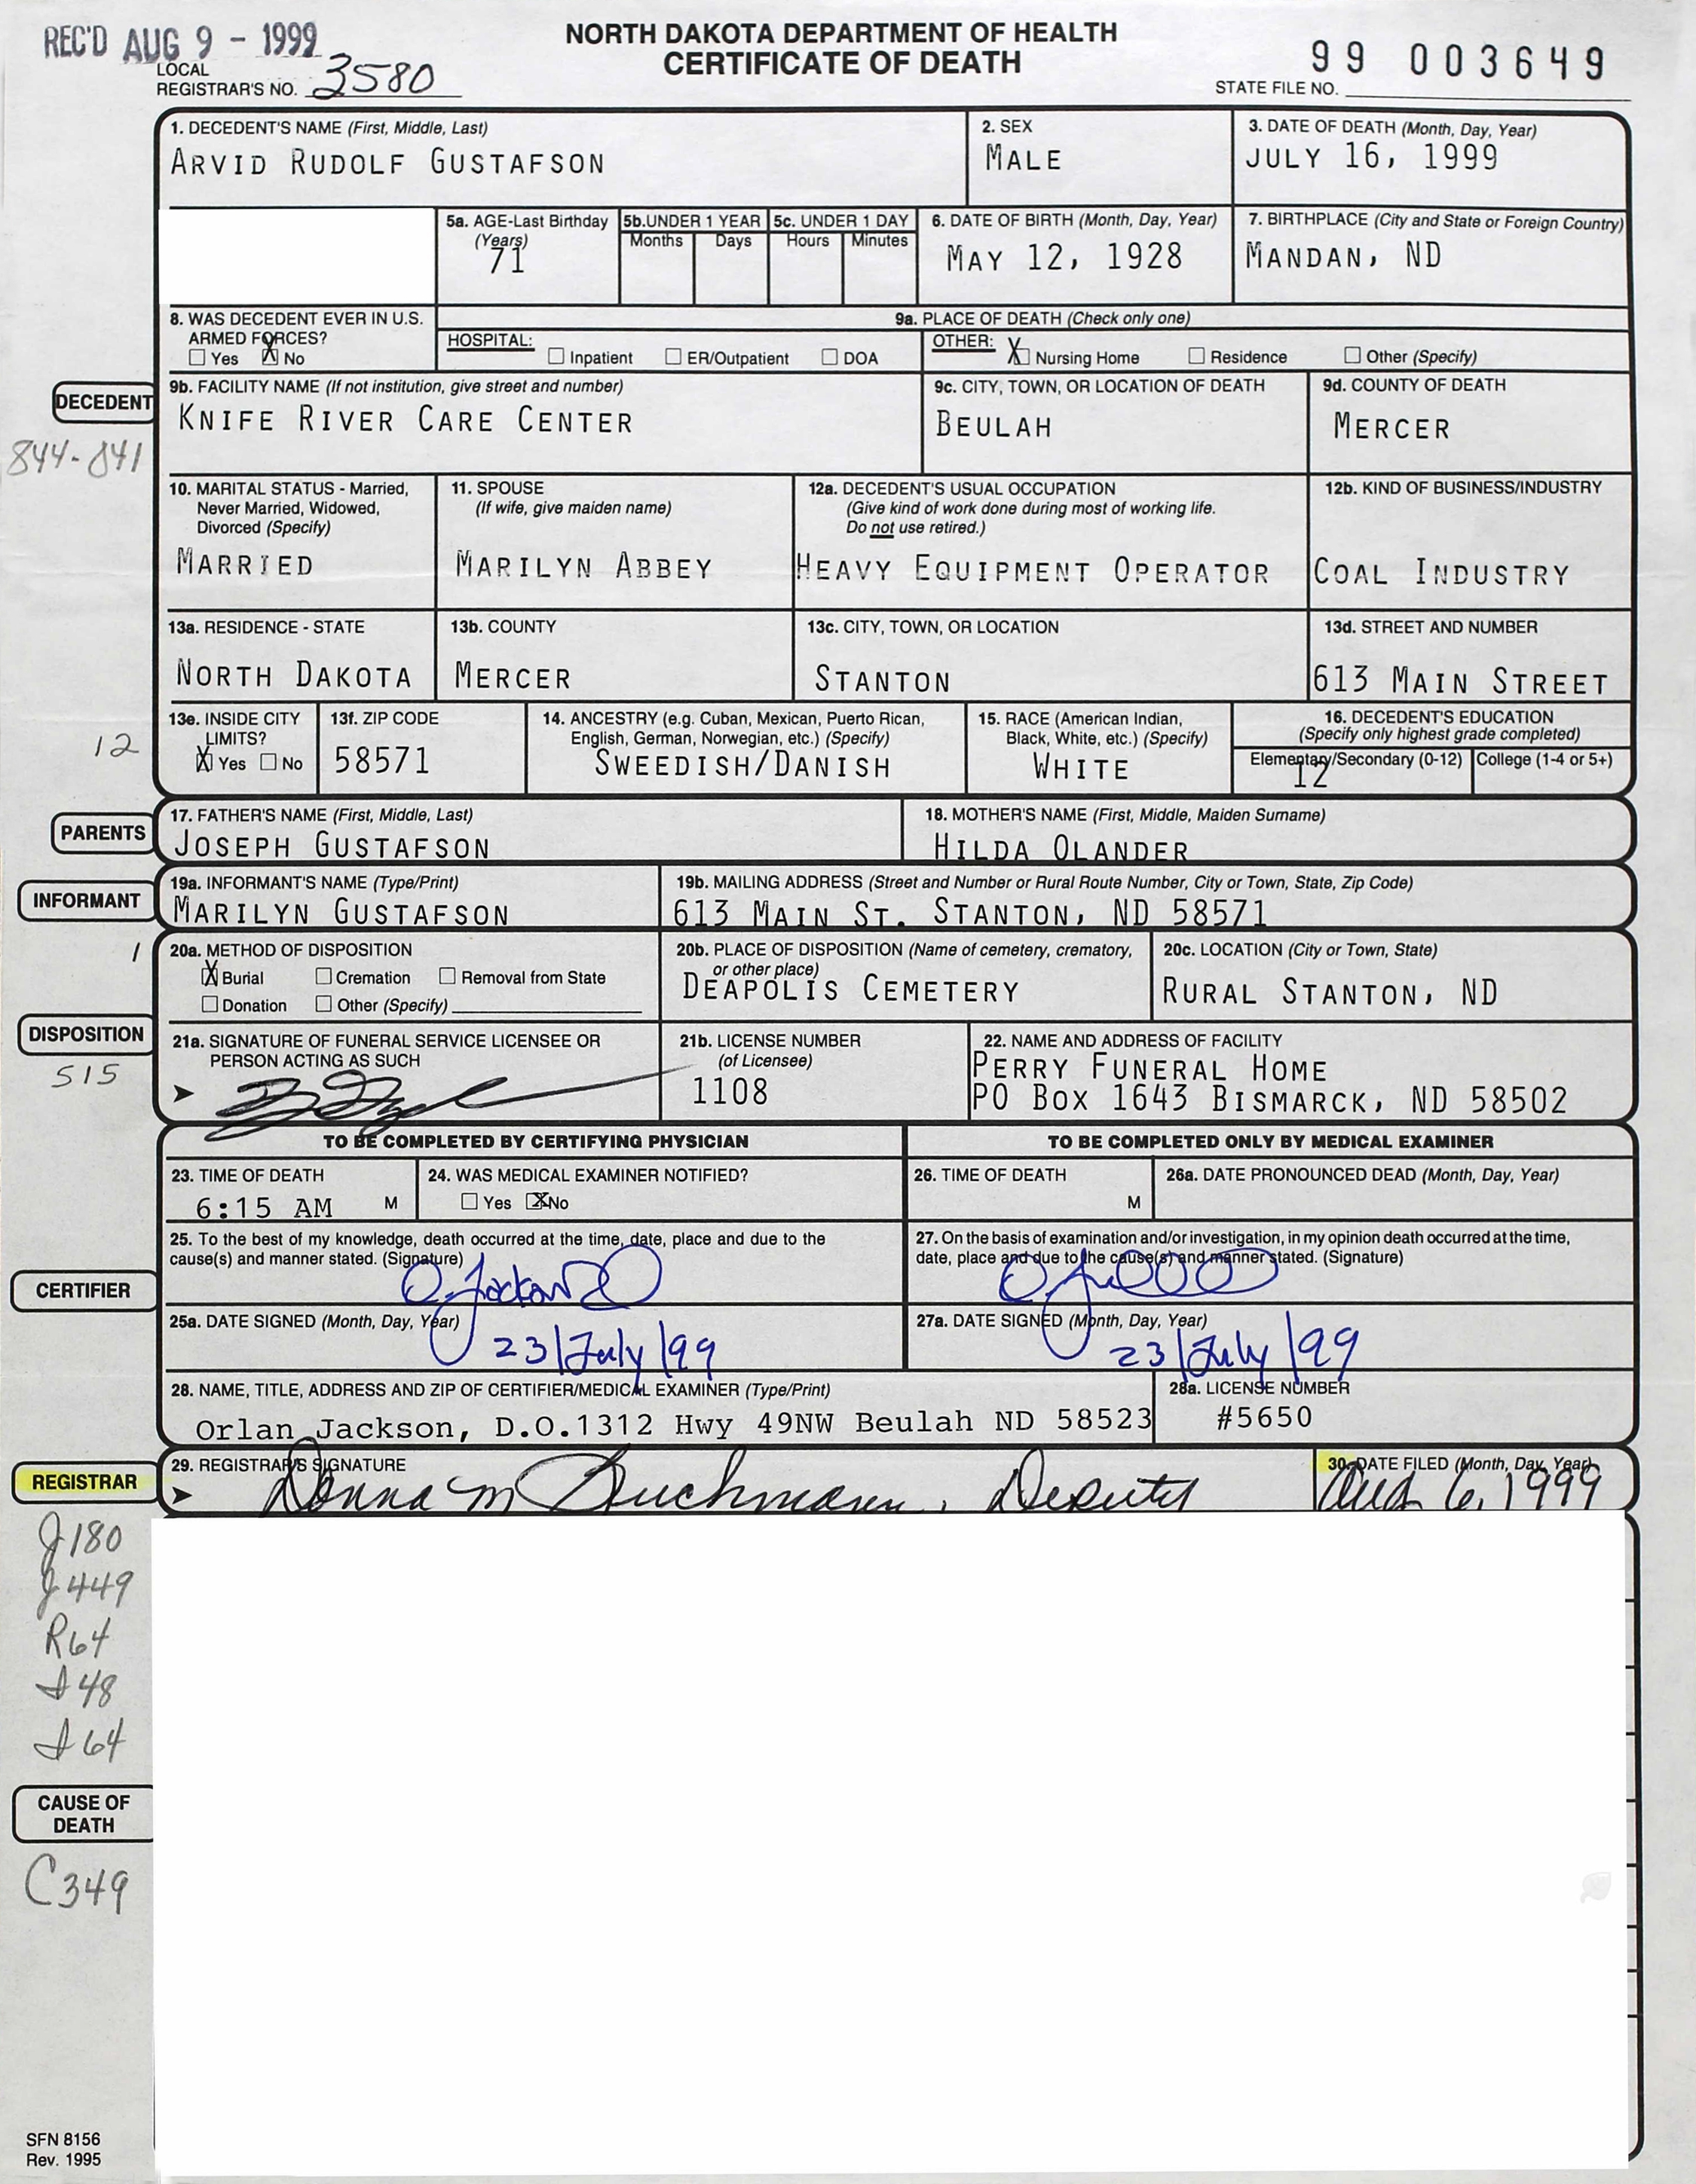 REC'D AUG 9 - 1999
NORTH DAKOTA DEPARTMENT OF HEALTH
CERTIFICATE OF DEATH
LOCAL
REGISTRAR'S NO. 3580
99 003649
STATE FILE NO.
1. DECEDENT'S NAME (First, Middle, Last)
ARVID RUDOLF GUSTAFSON
2. SEX
MALE
3. DATE OF DEATH (Month, Day, Year)
JULY 16, 1999
5a. AGE-Last Birthday
(Years)
71
5b. UNDER 1 YEAR
Months Days
5c. UNDER 1 DAY
Hours Minutes
6. DATE OF BIRTH (Month, Day, Year)
MAY 12, 1928
7. BIRTHPLACE (City and State or Foreign Country)
MANDAN, ND
8. WAS DECEDENT EVER IN U.S.
ARMED FORCES?
☐ Yes X No
9a. PLACE OF DEATH (Check only one)
HOSPITAL: ☐ Inpatient ☐ ER/Outpatient ☐ DOA
OTHER: X Nursing Home ☐ Residence ☐ Other (Specify)
DECEDENT
844-841
9b. FACILITY NAME (If not institution, give street and number)
KNIFE RIVER CARE CENTER
9c. CITY, TOWN, OR LOCATION OF DEATH
BEULAH
9d. COUNTY OF DEATH
MERCER
10. MARITAL STATUS - Married,
Never Married, Widowed,
Divorced (Specify)
MARRIED
11. SPOUSE
(If wife, give maiden name)
MARILYN ABBEY
12a. DECEDENT'S USUAL OCCUPATION
(Give kind of work done during most of working life.
Do not use retired.)
HEAVY EQUIPMENT OPERATOR
12b. KIND OF BUSINESS/INDUSTRY
COAL INDUSTRY
13a. RESIDENCE - STATE
NORTH DAKOTA
13b. COUNTY
MERCER
13c. CITY, TOWN, OR LOCATION
STANTON
13d. STREET AND NUMBER
613 MAIN STREET
12
13e. INSIDE CITY
LIMITS?
X Yes ☐ No
13f. ZIP CODE
58571
14. ANCESTRY (e.g. Cuban, Mexican, Puerto Rican,
English, German, Norwegian, etc.) (Specify)
SWEEDISH/DANISH
15. RACE (American Indian,
Black, White, etc.) (Specify)
WHITE
16. DECEDENT'S EDUCATION
(Specify only highest grade completed)
Elementary/Secondary (0-12) College (1-4 or 5+)
12
PARENTS
17. FATHER'S NAME (First, Middle, Last)
JOSEPH GUSTAFSON
18. MOTHER'S NAME (First, Middle, Maiden Surname)
HILDA OLANDER
INFORMANT
19a. INFORMANT'S NAME (Type/Print)
MARILYN GUSTAFSON
19b. MAILING ADDRESS (Street and Number or Rural Route Number, City or Town, State, Zip Code)
613 MAIN ST. STANTON, ND 58571
1
20a. METHOD OF DISPOSITION
X Burial ☐ Cremation ☐ Removal from State
☐ Donation ☐ Other (Specify)
20b. PLACE OF DISPOSITION (Name of cemetery, crematory,
or other place)
DEAPOLIS CEMETERY
20c. LOCATION (City or Town, State)
RURAL STANTON, ND
DISPOSITION
515
21a. SIGNATURE OF FUNERAL SERVICE LICENSEE OR
PERSON ACTING AS SUCH
21b. LICENSE NUMBER
(of Licensee)
1108
22. NAME AND ADDRESS OF FACILITY
PERRY FUNERAL HOME
PO BOX 1643 BISMARCK, ND 58502
TO BE COMPLETED BY CERTIFYING PHYSICIAN
TO BE COMPLETED ONLY BY MEDICAL EXAMINER
23. TIME OF DEATH
6:15 AM M
24. WAS MEDICAL EXAMINER NOTIFIED?
☐ Yes X No
26. TIME OF DEATH
M
26a. DATE PRONOUNCED DEAD (Month, Day, Year)
CERTIFIER
25. To the best of my knowledge, death occurred at the time, date, place and due to the
cause(s) and manner stated. (Signature)
O. Jackson DO
27. On the basis of examination and/or investigation, in my opinion death occurred at the time,
date, place and due to the cause(s) and manner stated. (Signature)
25a. DATE SIGNED (Month, Day, Year)
23/July/99
27a. DATE SIGNED (Month, Day, Year)
23/July/99
28. NAME, TITLE, ADDRESS AND ZIP OF CERTIFIER/MEDICAL EXAMINER (Type/Print)
Orlan Jackson, D.O.1312 Hwy 49NW Beulah ND 58523
28a. LICENSE NUMBER
#5650
REGISTRAR
29. REGISTRAR'S SIGNATURE
Donna M Buchmann, Deputy
30. DATE FILED (Month, Day, Year)
Aug 6, 1999
J180
J449
R64
I48
I64
CAUSE OF
DEATH
C349
SFN 8156
Rev. 1995